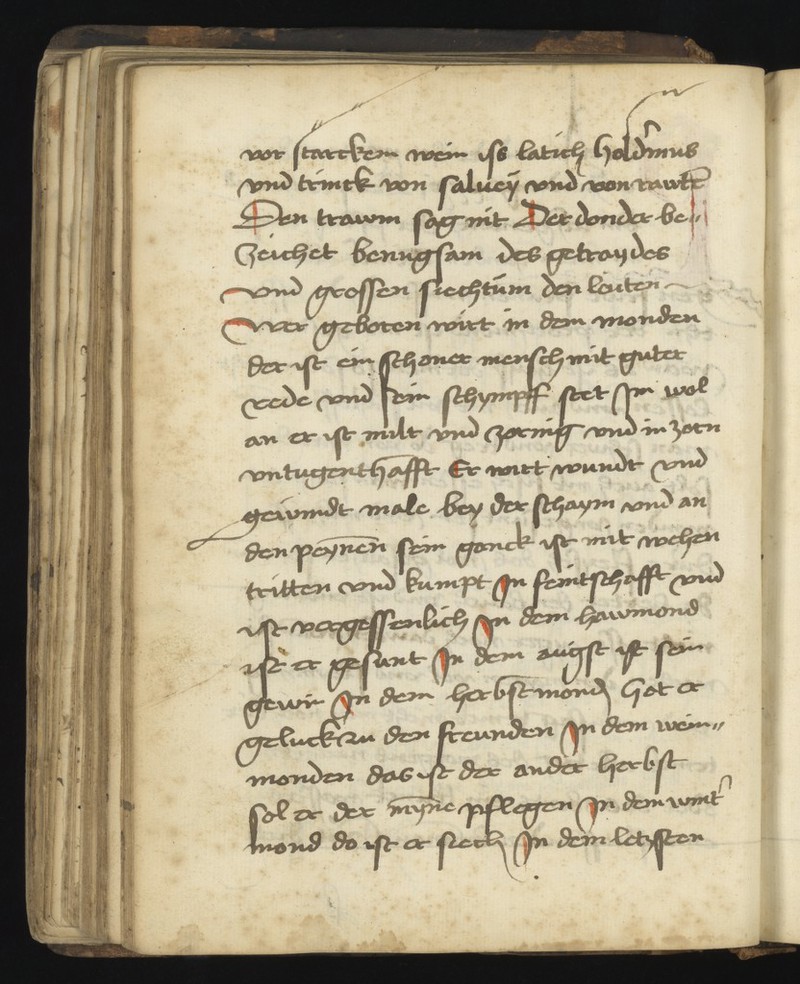 vor starckem wein iss latich hold'mus
vnd trinck von saluey vnd von rawte
Den trawm sag nit Der donder be„
zeichet benugsam des getraydes
vnd grossen siechtum den leuten
Wer geboren wirt in dem monden
der ist ein schoner mensch mit guter
rede vnd sein schympff stet Im wol
an er ist milt vnd zornig vnd in zorn
vntugenthafft Er wirt wundt vnd
gewindt male bey der schaym vnd an
den peynen sein ganck ist mit wehen
tritten vnd kumpt In feintschafft vnd
ist vergessenlich In dem hawmond
ist er gesunt In dem augst ist sein
gewin In dem herbstmond hat er
geluck zu den freunden In dem wein„
monden das ist der ander herbst
sol er der myne pflegen In dem wint'
mond do ist er siech In dem letzsten